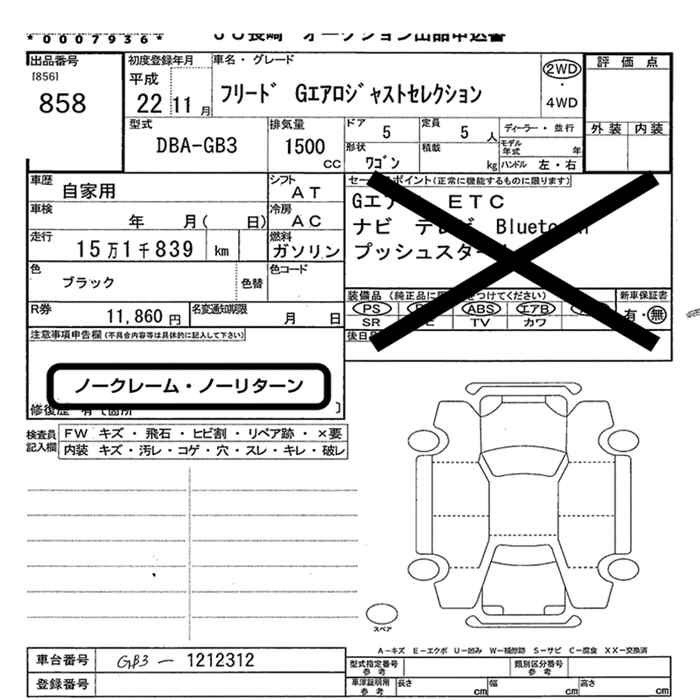 *0007936*
JU長崎 オークション出品申込書
出品番号
[856]
858
初度登録年月
平成
22 11月
車名・グレード
フリード Gエアロジャストセレクション
2WD
・
4WD
評価点
外装 内装
型式
DBA-GB3
排気量
1500
CC
ドア
5
定員
5 人
ディーラー・並行
形状
ワゴン
積載
kg
モデル年式 年
ハンドル 左・右
車歴
自家用
シフト
AT
車検
年 月( 日)
冷房
AC
走行
15万1千839 km
燃料
ガソリン
色
ブラック
色替
色コード
R券
11,860 円
名変通知期限
月 日
セールスポイント(正常に機能するものに限ります)
Gエア ETC
ナビ テレビ Bluetooth
プッシュスタート
装備品
PS ABS エアB
SR TV カワ
新車保証書
有・無
後日
注意事項申告欄(不具合内容等は具体的に記入して下さい)
ノークレーム・ノーリターン
修復歴 有 で箇所
検査員
記入欄
FW キズ・飛石・ヒビ割・リペア跡・×要
内装 キズ・汚レ・コゲ・穴・スレ・キレ・破レ
スペア
A-キズ E-エクボ U-凹み W-補修跡 S-サビ C-腐食 XX-交換済
車台番号
GB3-1212312
登録番号
型式指定番号
参考
類別区分番号
参考
車庫証明用
参考
長さ cm
幅 cm
高さ cm